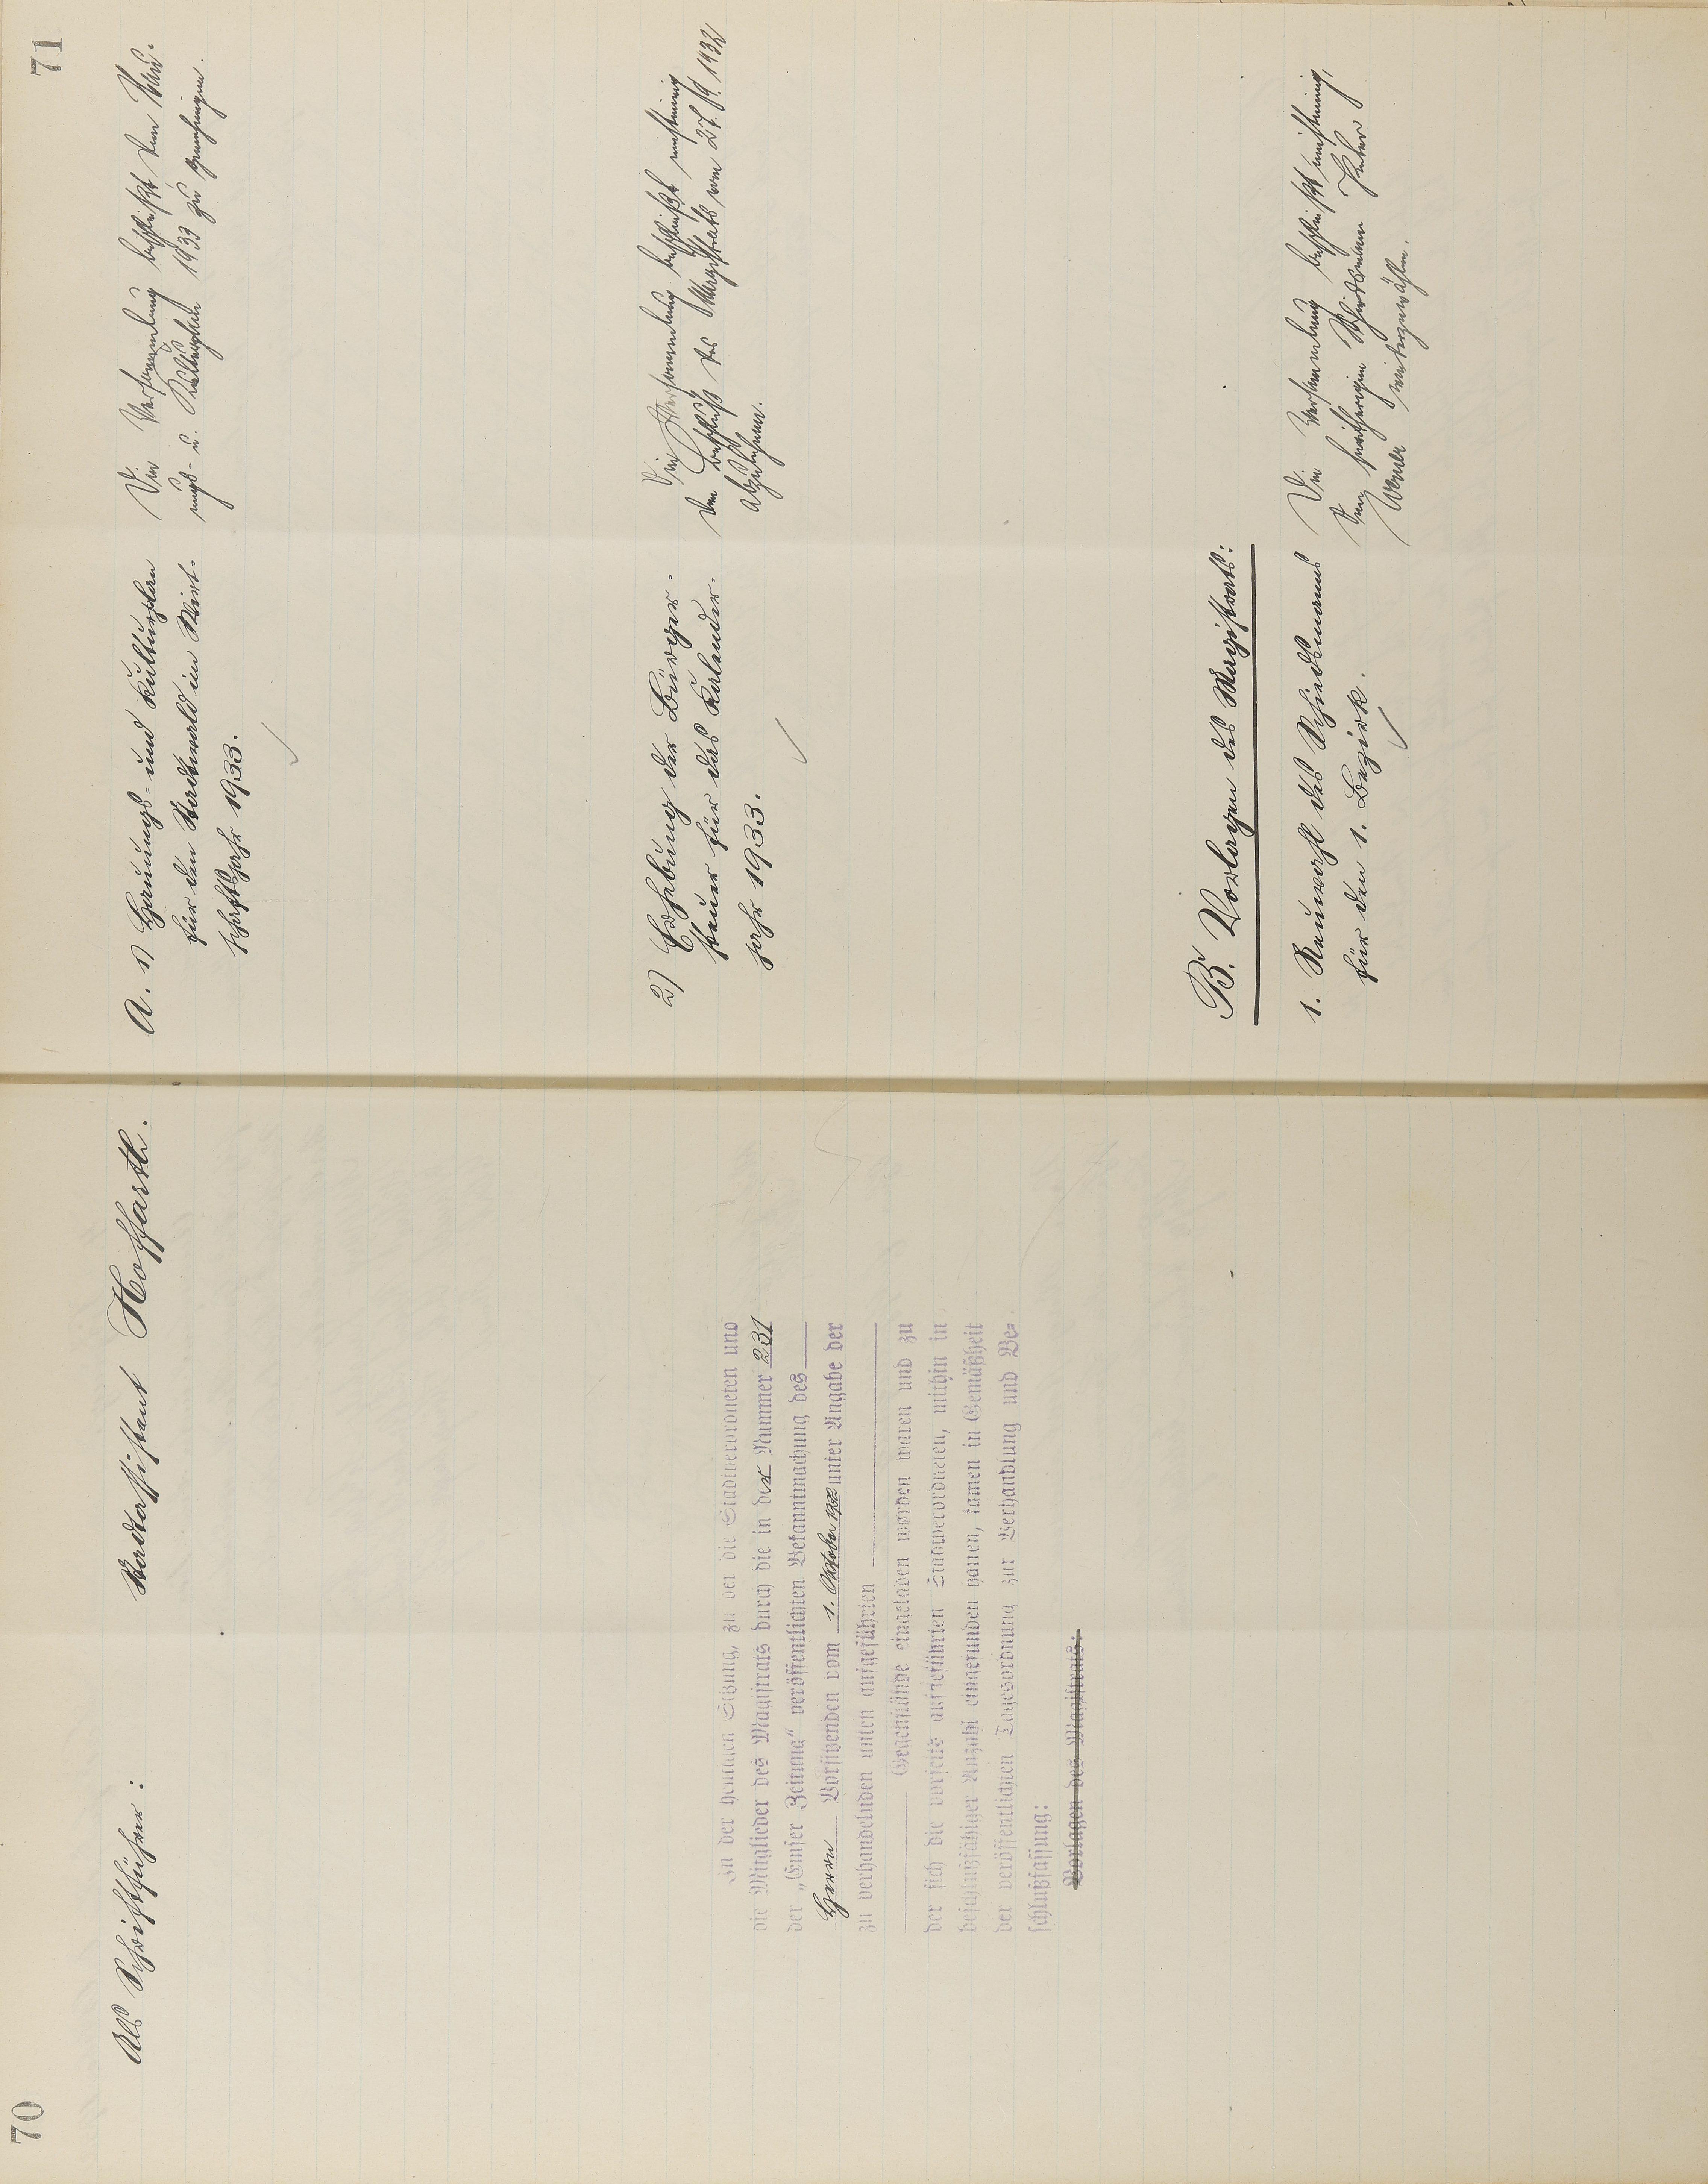 70
Als Schriftführer: Stadtassistent Hoffarth.
In der heutigen Sitzung, zu der die Stadtverordneten und
die Mitglieder des Magistrats durch die in der Nummer 231
der „Emser Zeitung“ veröffentlichten Bekanntmachung des
Herrn Vorsitzenden vom 1. Oktober 1932 unter Angabe der
zu verhandelnden unten aufgeführten
Gegenstände eingeladen worden waren und zu
der sich die vorseits aufgeführten Stadtverordneten, mithin in
beschlußfähiger Anzahl eingefunden hatten, kamen in Gemäßheit
der veröffentlichten Tagesordnung zur Verhandlung und Be=
schlußfassung:
Vorlagen des Magistrats:
71
A. 1) Hauungs- und Kulturplan
für den Stadtwald im Wirt-
schaftsjahr 1933.
Die Versammlung beschließt dem Hau-
ungs- u. Kulturplan 1933 zu genehmigen.
2) Erhebung der Bürger-
steuer für das Kalender-
jahr 1933.
Die Versammlung beschließt einstimmig
den Beschluß des Magistrats vom 27./9. 1932
abzulehnen.
B. Vorlagen des Magistrats:
1. Neuwahl des Schiedsmanns
für den 1. Bezirk.
Die Versammlung beschließt einstimmig,
den seitherigen Schiedsmann Peter
Werner wiederzuwählen.